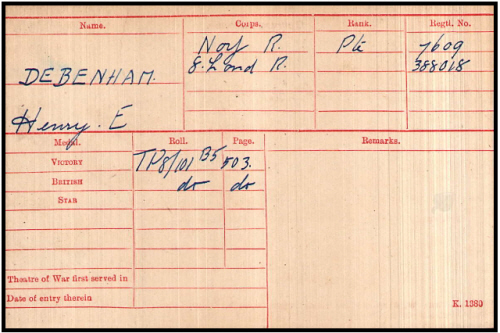 Name. Corps. Rank. Regtl. No.
Norf R. Pte 7609
DEBENHAM. 8. Lond R. 388018
Henry. E
Medal. Roll. Page. Remarks.
VICTORY TP8/101 B5 503.
BRITISH do do
STAR
Theatre of War first served in
Date of entry therein
K. 1380